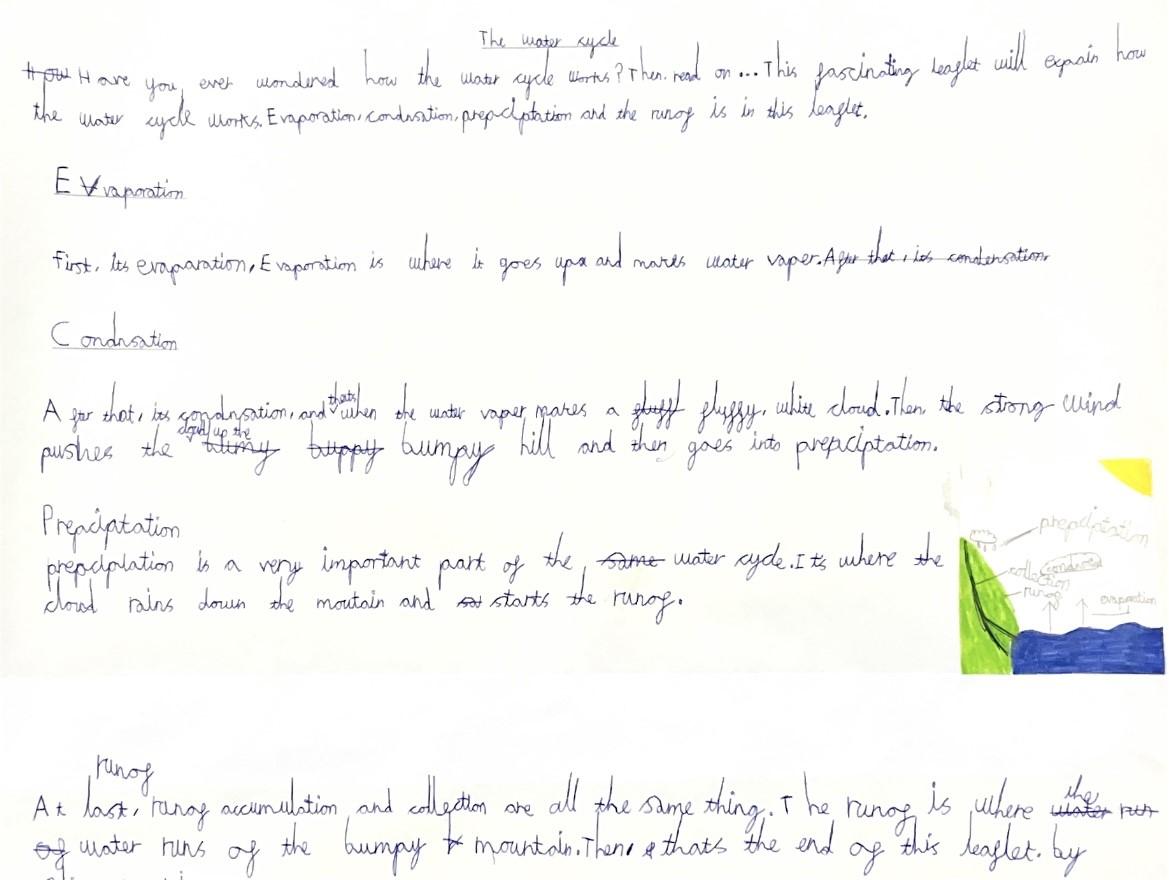 The water cycle
Have you ever wondered how the water cycle works? Then. read on ... This fascinating leaflet will expain how
the water cycle works. Evaporation, condnsation, prepciptation and the runof is in this leaflet.
Evaporation
First, its evaparation, Evaporation is where it goes up and makes water vaper. After that, its condensation.
Condnsation
After that, its condnsation, and thats when the water vaper makes a fluff fluffy, white cloud. Then, the strong wind
pushes the cloud up the bumpy hill and then goes into prepciptation.
Prepciptation
prepciptation is a very important part of the same water cycle. Its where the
cloud rains down the moutain and starts the runof.
prepciptation
condnsed
collection
runof
evaporation
runof
At last, runof accumulation and collection are all the same thing. The runof is where the water run
of water runs of the bumpy mountain. Then, thats the end of this leaflet. by